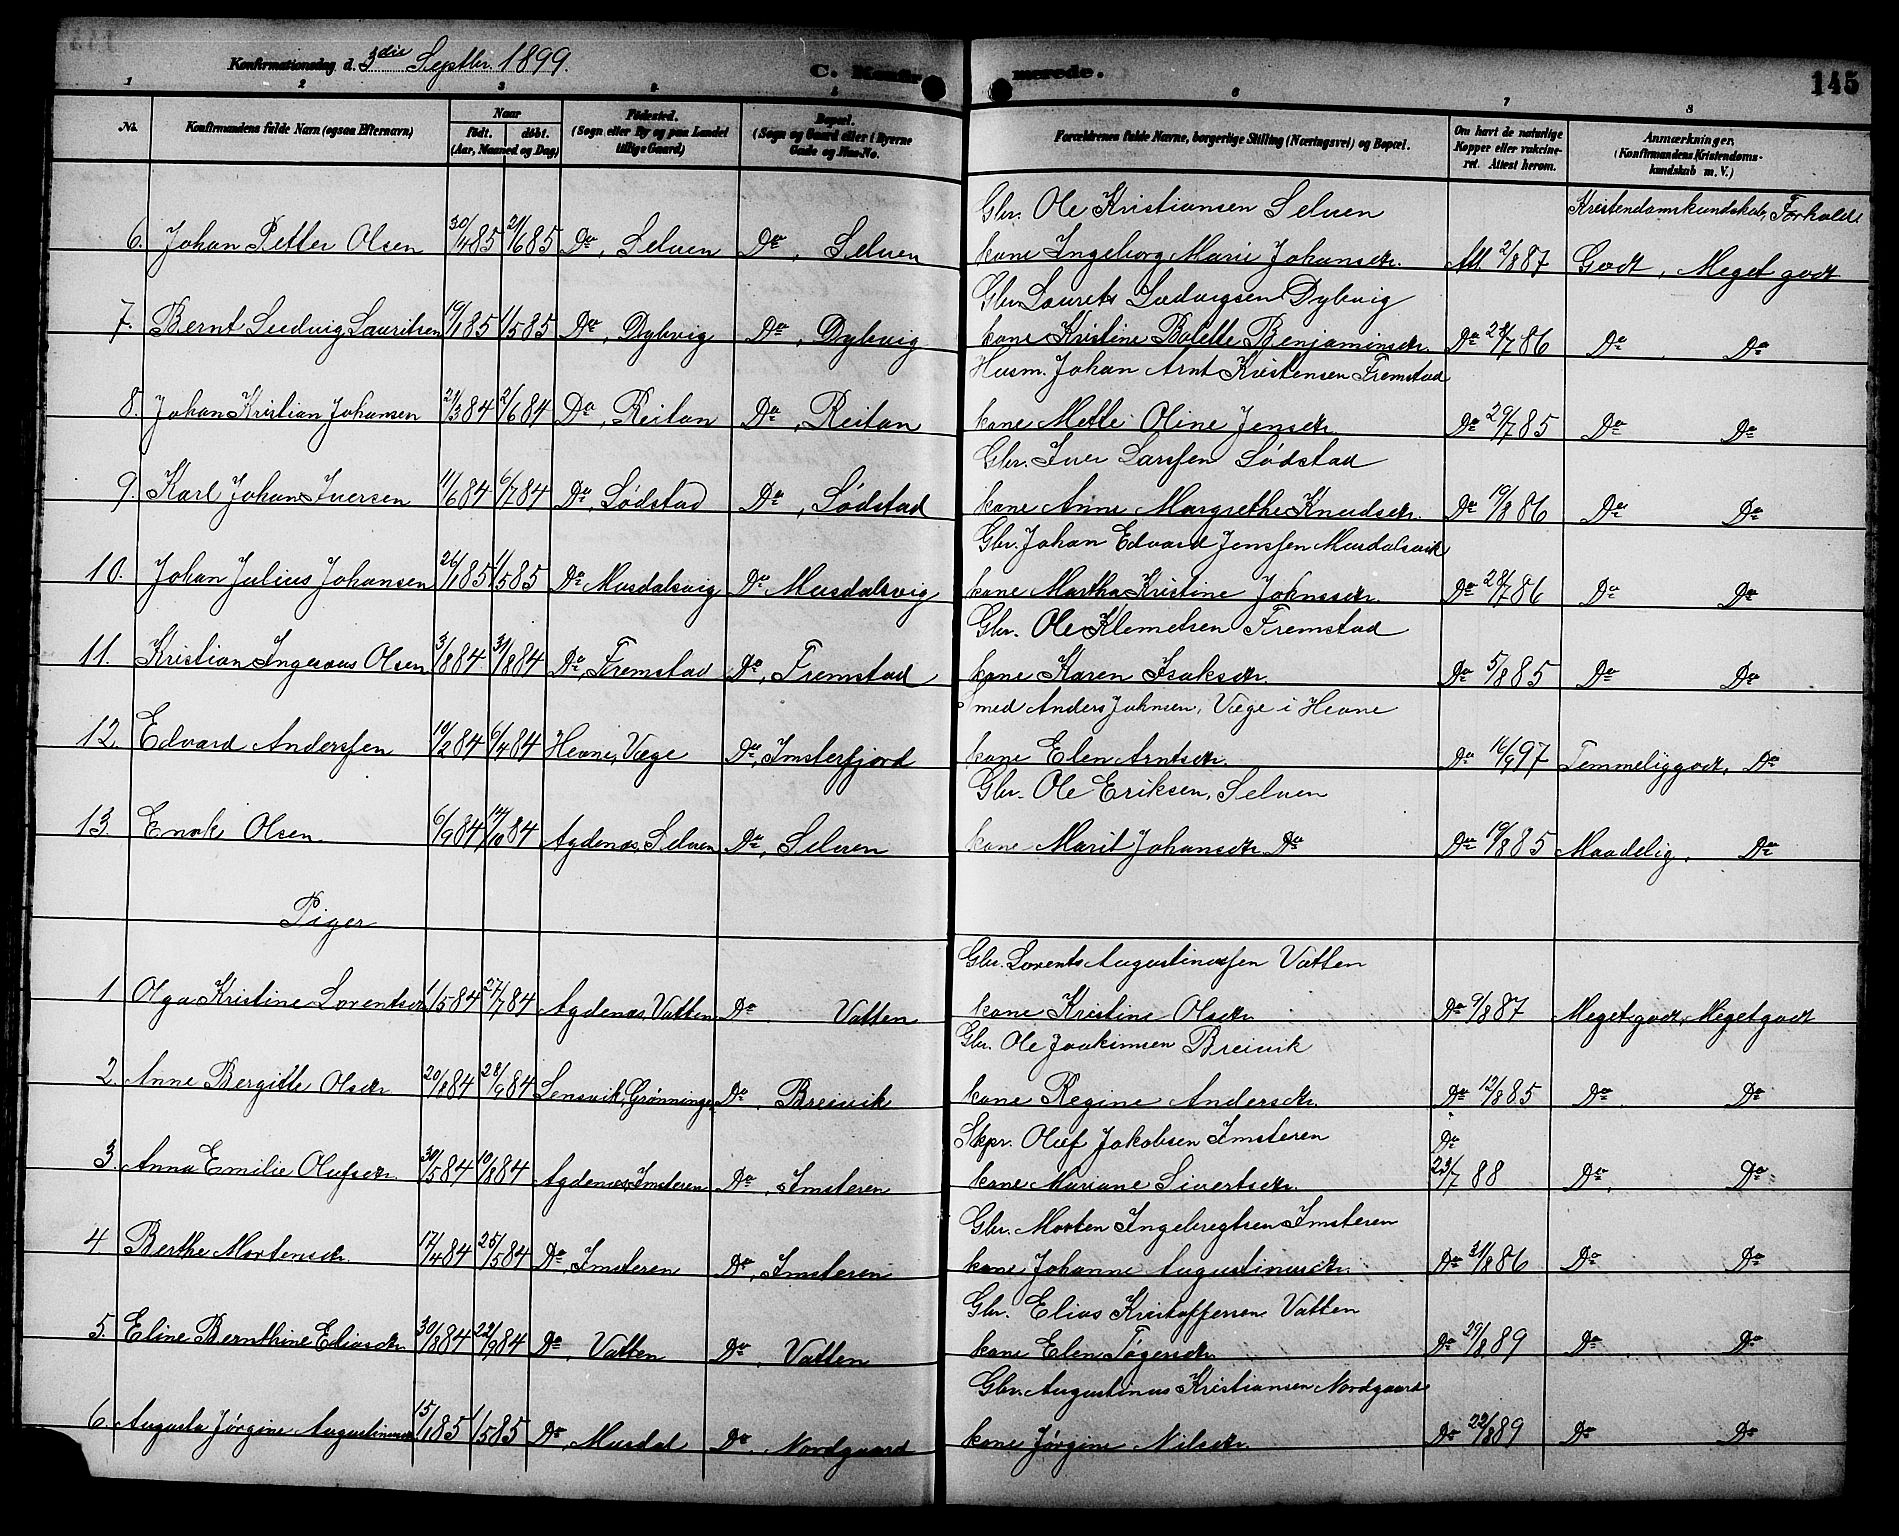 Konfirmationsdag d. 3die Septbr. 1899. C. Konfirmerede. 145
1 2 3 4 5 6 7 8
No. Konfirmandens fulde Navn (ogsaa Efternavn) Naar født. døbt. (Aar, Maaned og Dag) Fødested. (Sogn eller By og paa Landet tillige Gaard) Bopæl. (Sogn og Gaard eller i Byerne Gade og Hus-No. Forældrenes fulde Navne, borgerlige Stilling (Næringsvei) og Bopæl. Om havt de naturlige Kopper eller vakcineret. Attest herom. Anmærkninger. (Konfirmandens Kristendomskundskab m. V.)
Gbr. Ole Kristiansen Selven Kristendomskundskab, Forhold:
6. Johan Petter Olsen 30/4 85 21/6 85 Do, Selven Do, Selven kone Ingeborg Marie Johansdr. Att. 2/8 87 Godt, Meget godt
Gbr. Laurits Ludvigsen Dybvig
7. Bernt Ludvig Lauritsen 19/1 85 1/5 85 Do, Dybvig Do, Dybvig kone Kristine Bolette Benjaminsdr. Do 28/7 86 Do Do
Husm. Johan Arnt Kristensen Fremstad
8. Johan Kristian Johansen 21/3 84 2/6 84 Do, Reitan Do, Reitan kone Mette Oline Jensdr. Do 29/7 85 Do Do
Gbr. Iver Larssen Sødstad
9. Karl Johan Iversen 11/6 84 6/7 84 Do, Sødstad Do, Sødstad kone Anne Margrethe Knudsdr. Do 19/8 86 Do Do
Gbr. Johan Edvard Jenssen Musdalsvik
10. Johan Julius Johansen 26/1 85 1/5 85 Do Musdalsvig Do Musdalsvig kone Martha Kristine Johnsdr. Do 28/7 86 Do Do
Gbr. Ole Klemetsen Fremstad
11. Kristian Ingvous Olsen 3/8 84 31/8 84 Do, Fremstad Do, Fremstad kone Karen Isaksdr. Do 5/8 85 Do Do
Smed Anders Johnsen, Væge i Hevne
12. Edvard Anderssen 10/2 84 6/4 84 Hevne, Væge Do, Imsterfjord kone Elen Arntsdr. Do 16/9 97 Temmelig godt, Do
Gbr. Ole Eriksen, Selven
13. Enok Olsen 6/9 84 14/10 84 Agdenæs, Selven Do, Selven kone Marit Johansdr. Do Do 19/8 85 Maadelig. Do
Piger
Gbr. Lorents Augustinussen Vatten
1 Olga Kristine Lorentsdr 1/5 84 27/7 84 Agdenæs, Vatten Do Vatten kone Kristine Olsdr. Do 9/8 87 Meget godt, Meget godt
Gbr. Ole Joakimsen Breivik
2 Anne Bergitte Olsdr 20/8 84 28/9 84 Lensvik, Grønningen Do, Breivik kone Regine Andersdr. Do 12/8 85 Do Do
Skpr. Oluf Jakobsen Imsteren Do
3. Anna Emilie Olufsdr. 30/5 84 10/8 84 Agdenæs, Imsteren Do, Imsteren kone Mariane Sivertsdr. 23/7 88 Do. Do
Gbr. Morten Ingebregtsen Imsteren
4 Berthe Mortensdr. 17/4 84 25/5 84 Do, Imsteren Do, Imsteren kone Johanne Augustinusdr. Do 31/8 86 Do Do
Gbr. Elias Kristoffersen Vatten
5. Eline Bernthine Eliasdr 30/8 84 22/9 84 Do, Vatten Do, Vatten kone Elen Tøgersdr. Do 29/8 89 Do Do
Gbr. Augustinus Kristiansen Nordgaard
6. Augusta Jørgine Augustinusdr 15/1 85 1/5 85 Do, Musdal Do, Nordgaard kone Jørgine Nilsdr. Do 22/8 89 Do Do